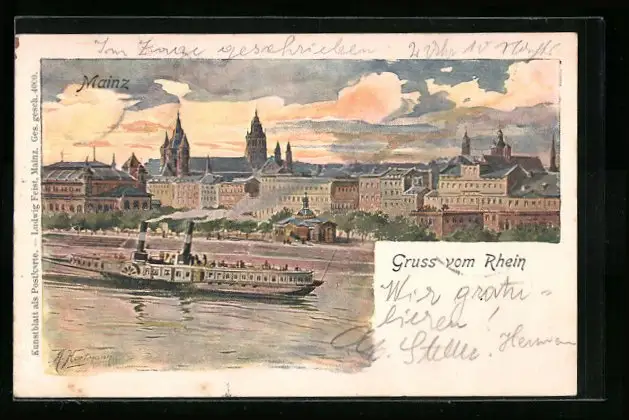 Im Zuge geschrieben 2 Uhr 10 Nachts
Mainz
Kunstblatt als Postkarte. — Ludwig Feist, Mainz. Ges. gesch. 4009.
Gruss vom Rhein
Wir gratu-
lieren!
Stelle. Herman